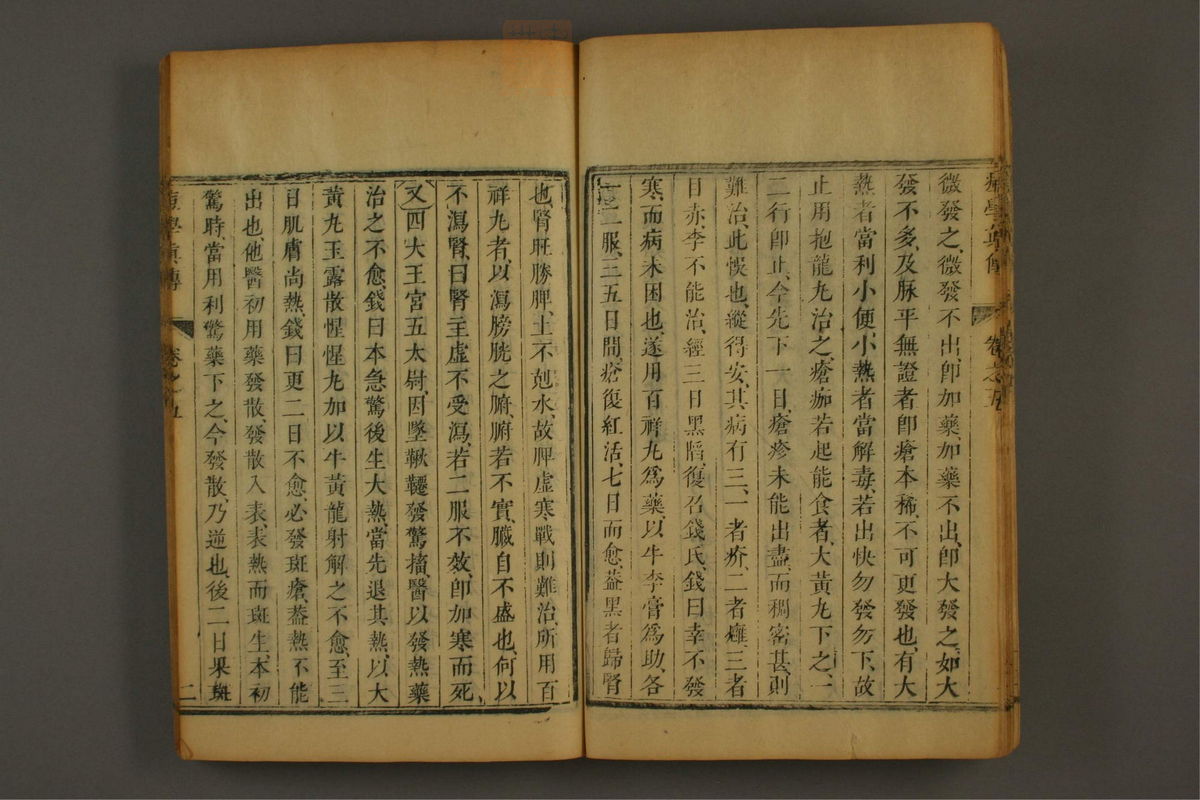 痘學眞傳 卷之五
微發之、微發不出、卽加藥、加藥不出、卽大發之、如大
發不多、及脉平無證者、卽瘡本稀、不可更發也、有大
熱者、當利小便、小熱者、當解毒、若出快、勿發勿下、故
止用抱龍九治之、瘡痂若起、能食者、大黃九下之、一
二行卽止、今先下一日、瘡疹未能出盡、而稠密甚、則
難治、此悞也、縱得安、其病有三、一者疥、二者癰、三者
目赤、李不能治、經三日黑陷、復召錢氏、錢曰、幸不發
寒、而病未困也、遂用百祥九爲藥、以牛李膏爲助、各
一二服、三五日間、瘡復紅活、七日而愈、葢黑者歸腎
也、腎旺勝脾、土不尅水、故脾虛寒戰則難治、所用百
祥九者、以瀉膀胱之腑、腑若不實、臟自不盛也、何以
不瀉腎、曰腎主虛不受瀉、若二服不效、卽加寒而死
又四大王宮五太尉、因墜鞦韆發驚搐、醫以發熱藥
治之不愈、錢曰本急驚後生大熱、當先退其熱、以大
黃九玉露散惺惺九加以牛黃龍射解之不愈、至三
日肌膚尚熱、錢曰更二日不愈、必發斑瘡、葢熱不能
出也、他醫初用藥發散、發散入表、表熱而斑生、本初
驚時、當用利驚藥下之、今發散、乃逆也、後二日果斑
痘學眞傳 卷之五 二